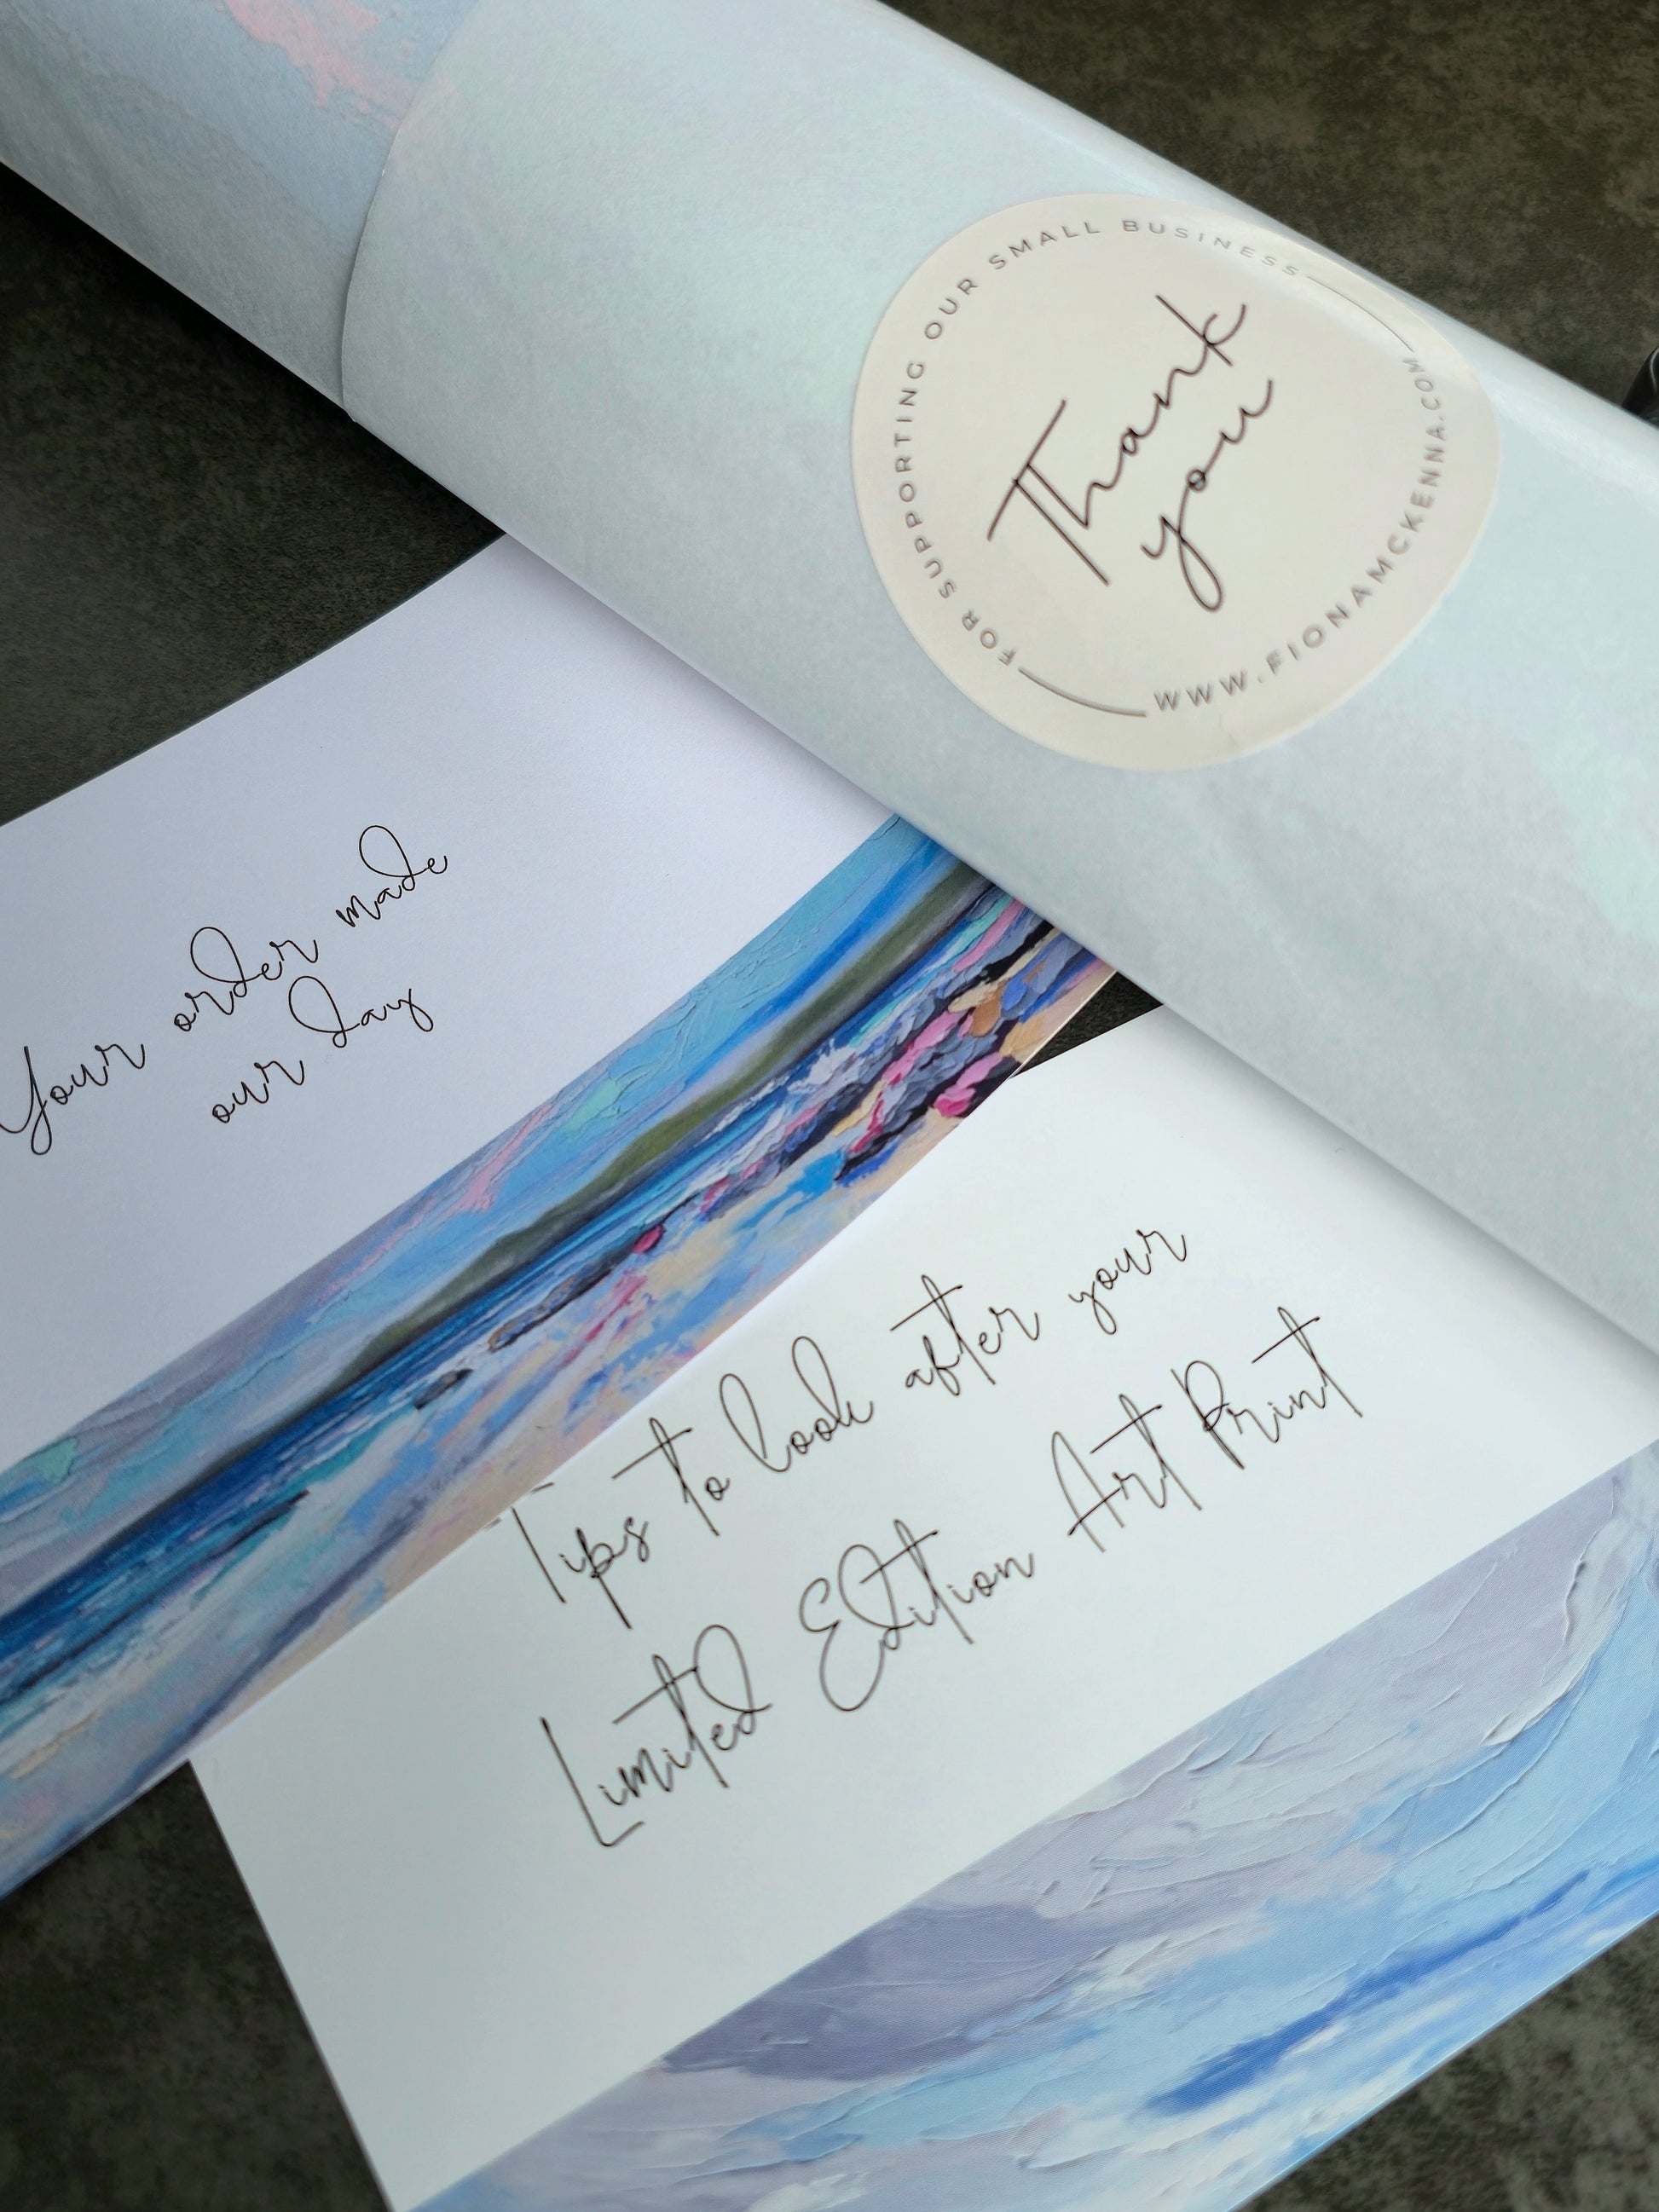 FOR SUPPORTING OUR SMALL BUSINESS
Thank
you
WWW.FIONAMCKENNA.COM
Your order made
our day
Tips to look after your
Limited Edition Art Print